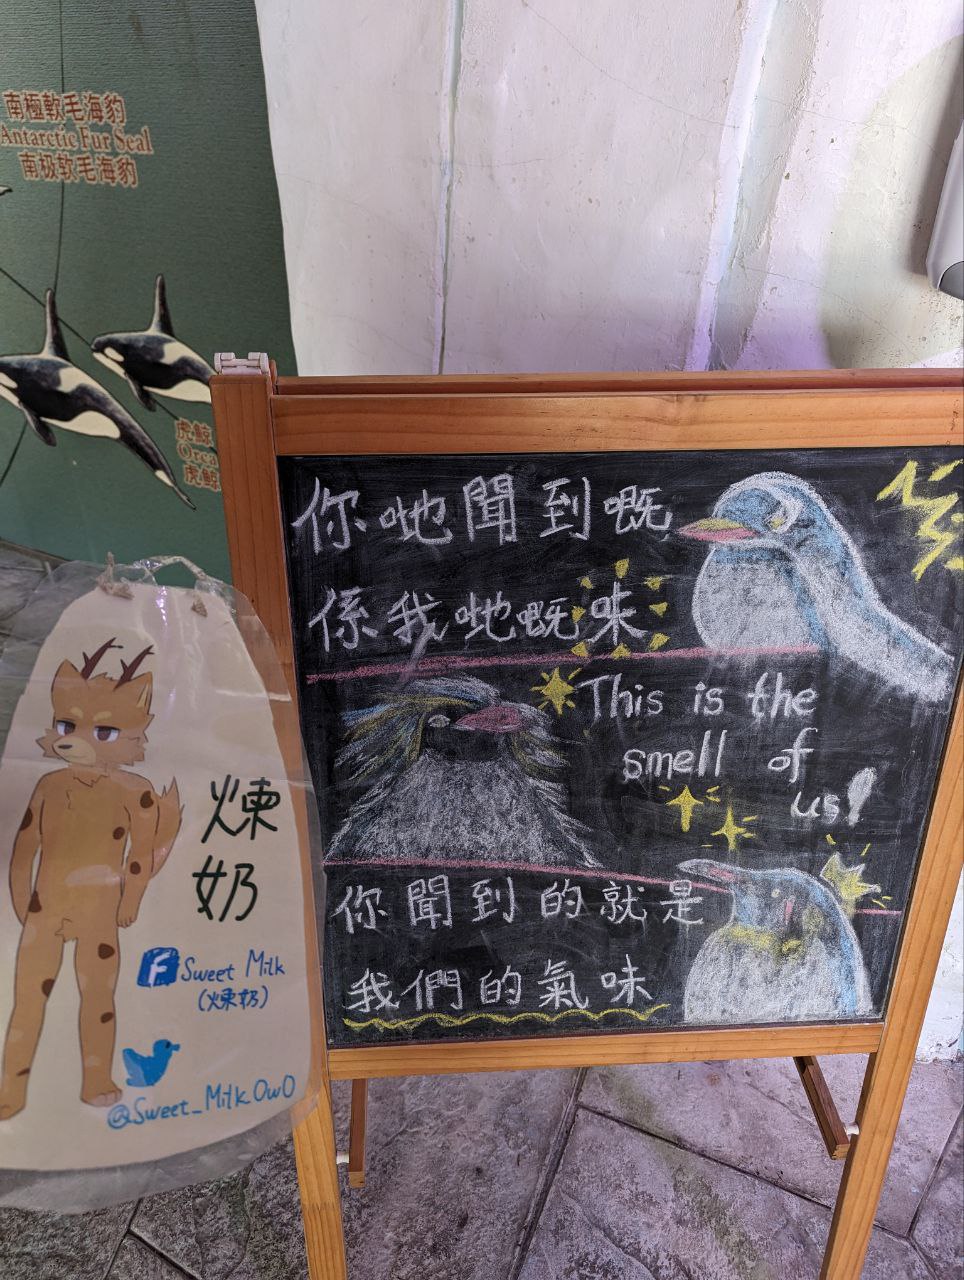 南極軟毛海豹
Antarctic Fur Seal
南极软毛海豹
虎鯨
Orca
虎鲸
你哋聞到嘅
係我哋嘅味
This is the
smell of
us!
你聞到的就是
我們的氣味
煉
奶
f Sweet Milk
(煉奶)
@Sweet_Milk_OwO